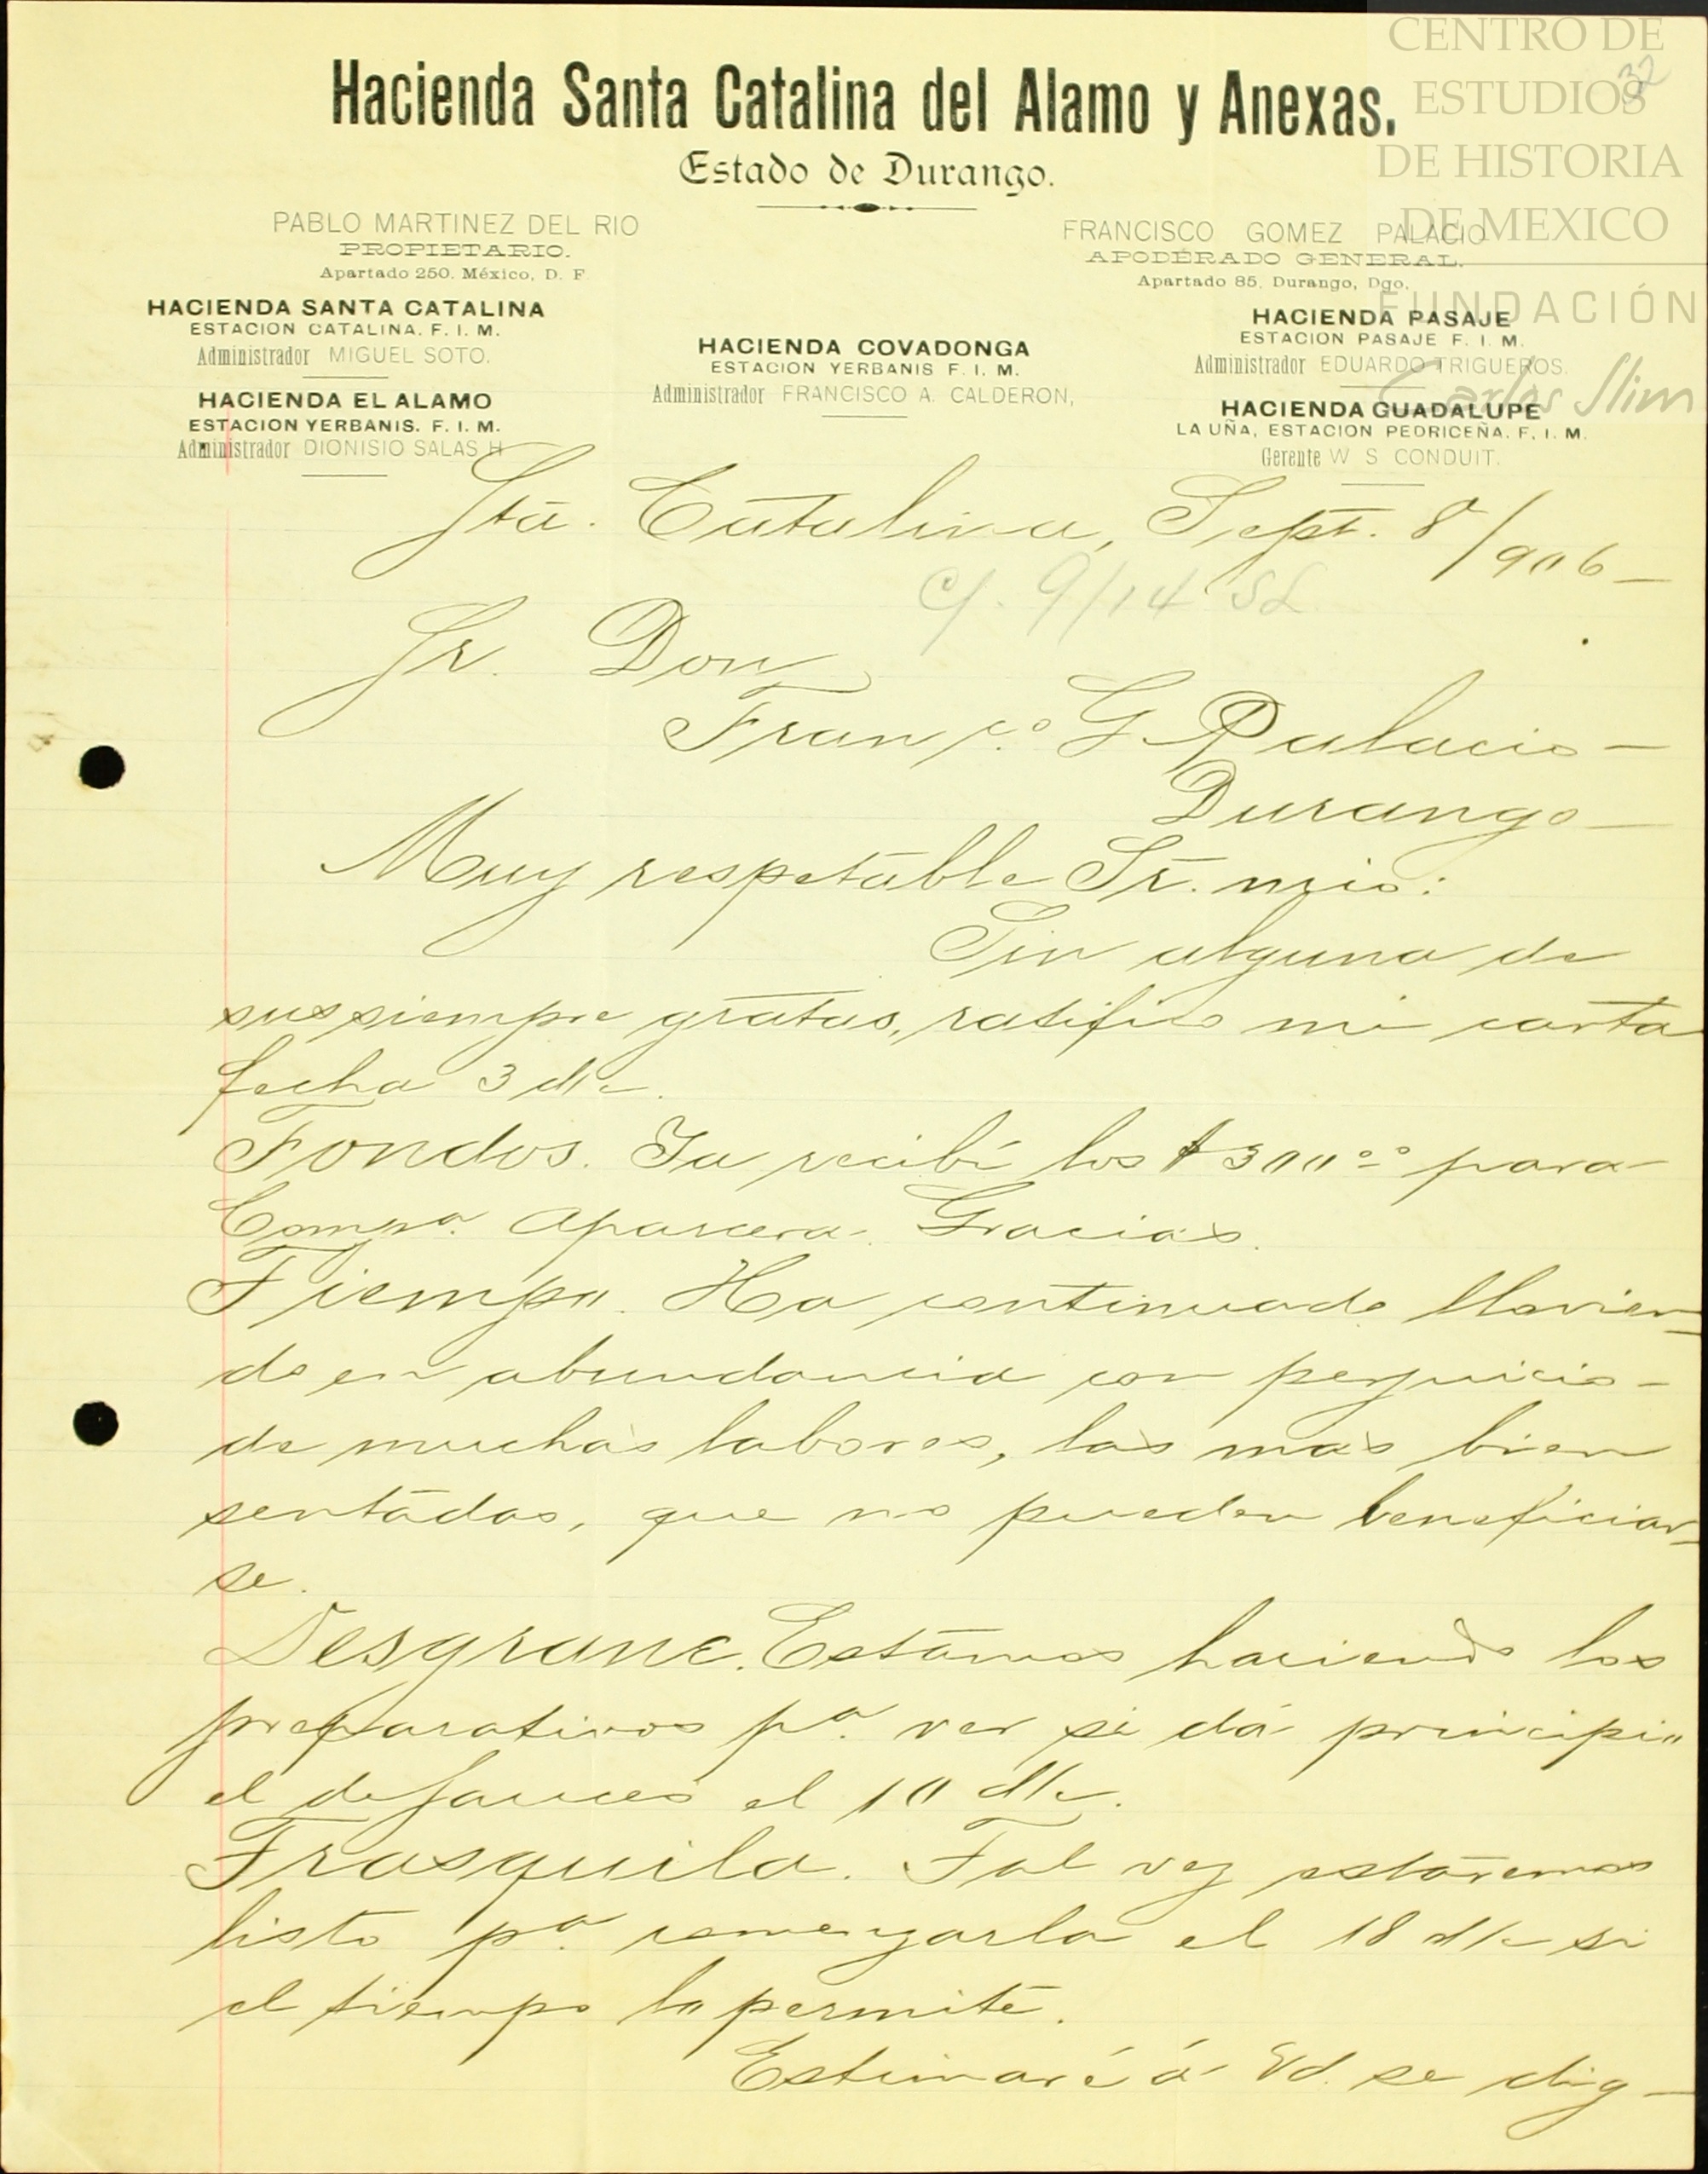 CENTRO DE
ESTUDIOS
DE HISTORIA
DE MEXICO
FUNDACIÓN
Carlos Slim
32
Hacienda Santa Catalina del Alamo y Anexas.
Estado de Durango.
PABLO MARTINEZ DEL RIO
PROPIETARIO.
Apartado 250. México, D. F.
FRANCISCO GOMEZ PALACIO
APODERADO GENERAL.
Apartado 85, Durango, Dgo.
HACIENDA SANTA CATALINA
ESTACION CATALINA. F. I. M.
Administrador MIGUEL SOTO.
HACIENDA EL ALAMO
ESTACION YERBANIS. F. I. M.
Administrador DIONISIO SALAS H
HACIENDA COVADONGA
ESTACION YERBANIS F. I. M.
Administrador FRANCISCO A. CALDERON,
HACIENDA PASAJE
ESTACION PASAJE F. I. M.
Administrador EDUARDO TRIGUEROS.
HACIENDA GUADALUPE
LA UÑA, ESTACION PEDRICEÑA. F. I. M.
Gerente W S CONDUIT.
Sta. Catalina, Sept. 8/906_
C/. 9/14 SL
Sr. Don
Franco. G Palacio_
Durango_
Muy respetable Sr. mio:
Sin alguna de
sus siempre gratas, ratifico mi carta
fecha 3 d/c.
Fondos. Ya recibí los $300oo para
Compa. Aparcera. Gracias.
Tiempo. Ha continuado llovien-
do en abundancia con perjuicio-
de muchas labores, las mas bien
sentádas, que no pueden beneficiar-
se.
Desgrane. Estámos haciendo los
preparativos pa. ver si dá principio
el de Sauces el 10 d/c.
Trasquila. Tal vez estáremos
listo pa. comenzarla el 18 d/c si
el tiempo lo permite.
Estimaré á Vd. se dig-